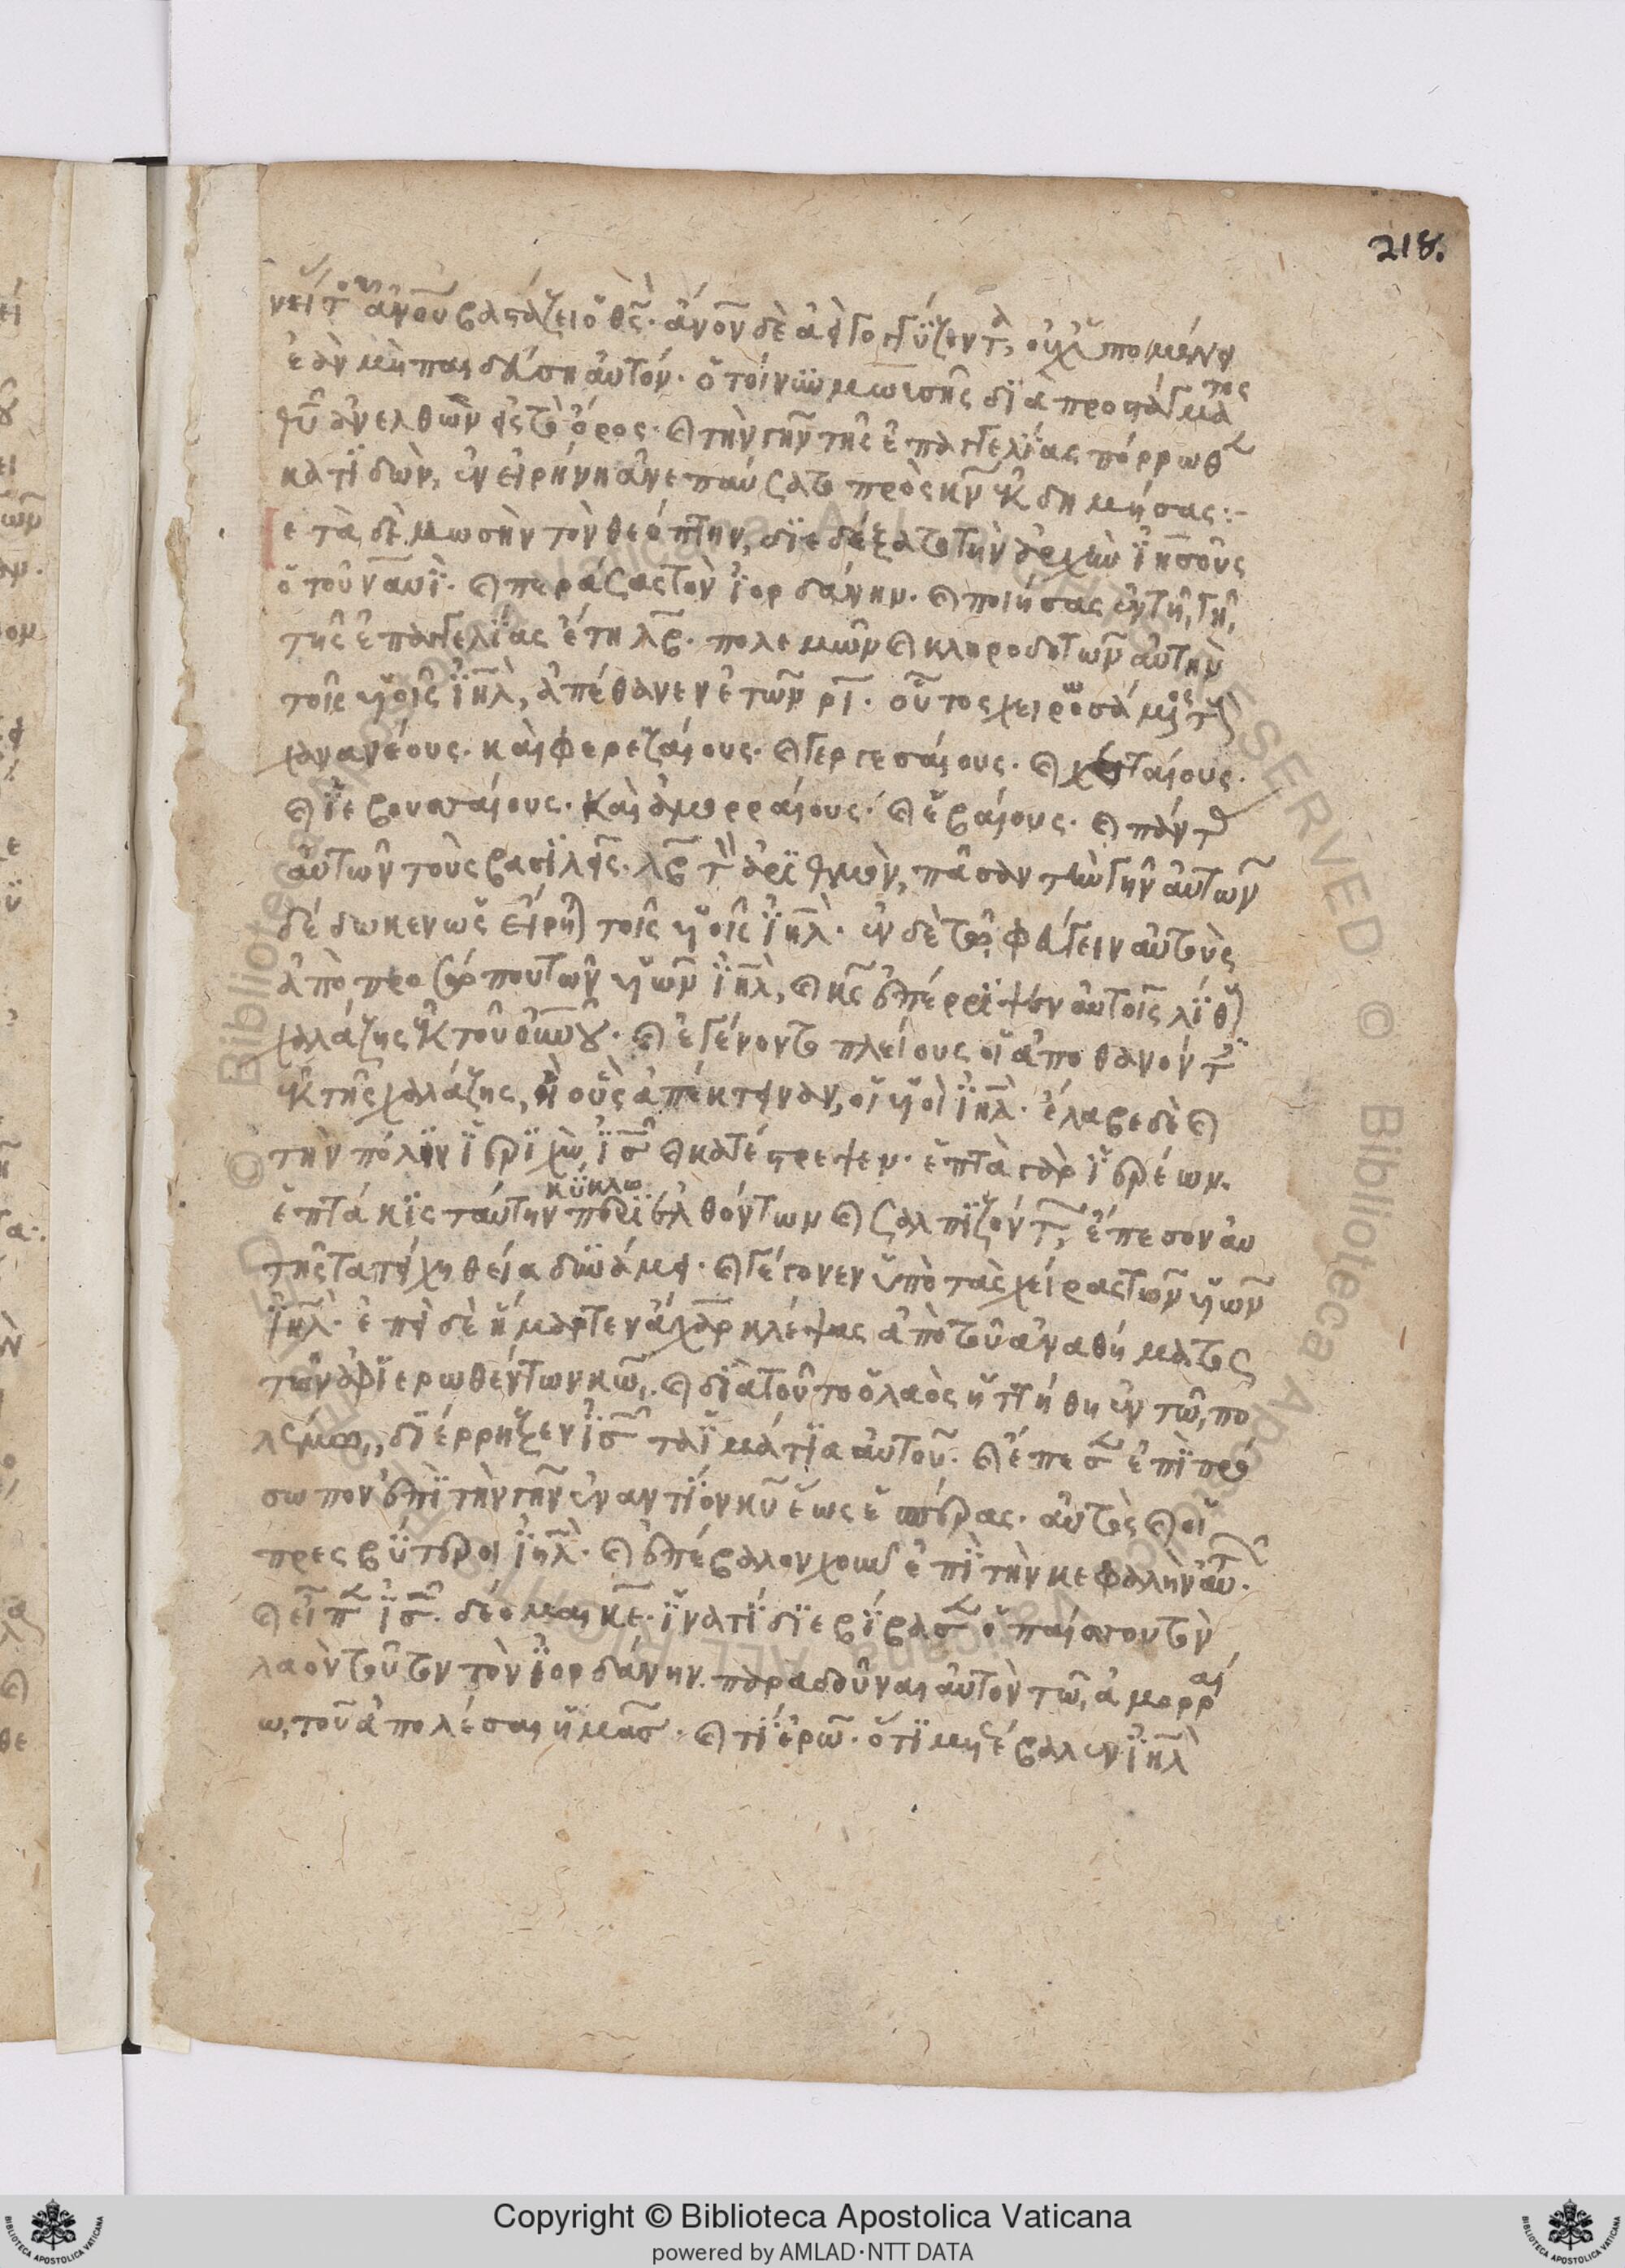 218.
νεί τῶν ἀνου βαστάζει ὁ θς̅· ἄνον δὲ ἀεὶ γογγύζοντα, οὐχ ὑπομένει
ἐὰν μὴ παιδεύσῃ αὐτόν· ὁ τοίνυν μωϋσῆς διὰ προστάγματος
θυ̅ ἀνελθὼν εἰς τὸ ὄρος· καὶ τὴν γῆν τῆς ἐπαγγελίας πόρρωθεν
κατιδὼν, ἐν εἰρήνῃ ἀνεπαύσατο πρὸς κν̅ ἐκδημήσας :-
ε τὰ δὲ μωσῆν τὸν θεόπτην, διεδέξατο τὴν ἀρχὴν ἰησοῦς
ὁ τοῦ ναυῒ· καὶ περάσας τὸν ἰορδάνην· καὶ ποιήσας ἐν τῇ γῇ
τῆς ἐπαγγελίας ἔτη λβ̅· πολεμῶν καὶ κληροδοτῶν αὐτὴν
τοῖς υἱοῖς ιη̅λ, ἀπέθανεν ἐτῶν ρι̅· οὗτος χειρωσάμενος τοὺς
χανανέους· καὶ φερεζαίους· καὶ γεργεσαίους· καὶ χετταίους·
καὶ ἰεβουσαίους· καὶ ἀμορραίους· καὶ εὐαίους· καὶ πάντας
αὐτῶν τοὺς βασιλεῖς· λβ̅ τὸν ἀριθμὸν, πᾶσαν τὴν γῆν αὐτῶν
δέδωκεν ὡς εἴρηται τοῖς υἱοῖς ιη̅λ· ἐν δὲ τῷ φεύγειν αὐτοὺς
ἀπὸ προσώπου τῶν υἱῶν ιη̅λ, καὶ κς̅ ἐπέρριψεν αὐτοῖς λίθους
χαλάζης ἐκ τοῦ οὐνου· καὶ ἐγένοντο πλείους οἱ ἀποθανόντες
ἐκ τῆς χαλάζης, ἢ οὓς ἀπέκτειναν, οἱ υἱοὶ ιη̅λ· ἔλαβε δὲ καὶ
τὴν πόλιν ἱεριχὼ ἰησοῦς καὶ κατέστρεψεν· ἑπτὰ γὰρ ἱερέων
κύκλω
ἑπτάκις ταύτην περιελθόντων καὶ σαλπιζόντων, ἔπεσον αὐ
τῆς τὰ τείχη θείᾳ δυνάμει· καὶ γέγονεν ὑπὸ τὰς χεῖρας τῶν υἱῶν
ιη̅λ· ἐπεὶ δὲ ἥμαρτεν ἄχαρ κλέψας ἀπὸ τοῦ ἀναθήματος
τῶν ἀφιερωθέντων κω̅· καὶ διὰ τοῦτο ὁ λαὸς ἡττήθη ἐν τῷ πο
λέμῳ, διέρρηξεν ἰησοῦς τὰ ἱμάτια αὐτοῦ· καὶ ἔπεσεν ἐπὶ πρό
σωπον ἐπὶ τὴν γῆν ἐναντίον κυ̅ ἕως ἑσπέρας· αὐτὸς καὶ οἱ
πρεσβύτεροι ιη̅λ· καὶ ἐπέβαλον χοῦν ἐπὶ τὴν κεφαλὴν αὐτῶν·
καὶ εἶπεν ἰησοῦς· δέομαι κε̅· ἱνατί διεβίβασεν ὁ παῖς σου τὸν
λαὸν τοῦτον τὸν ἰορδάνην· παραδοῦναι αὐτὸν τῷ ἀμορραί
ω, τοῦ ἀπολέσαι ἡμᾶς· καὶ τί ἐρῶ· ὅτι μετέβαλεν ιη̅λ
Copyright © Biblioteca Apostolica Vaticana
powered by AMLAD·NTT DATA